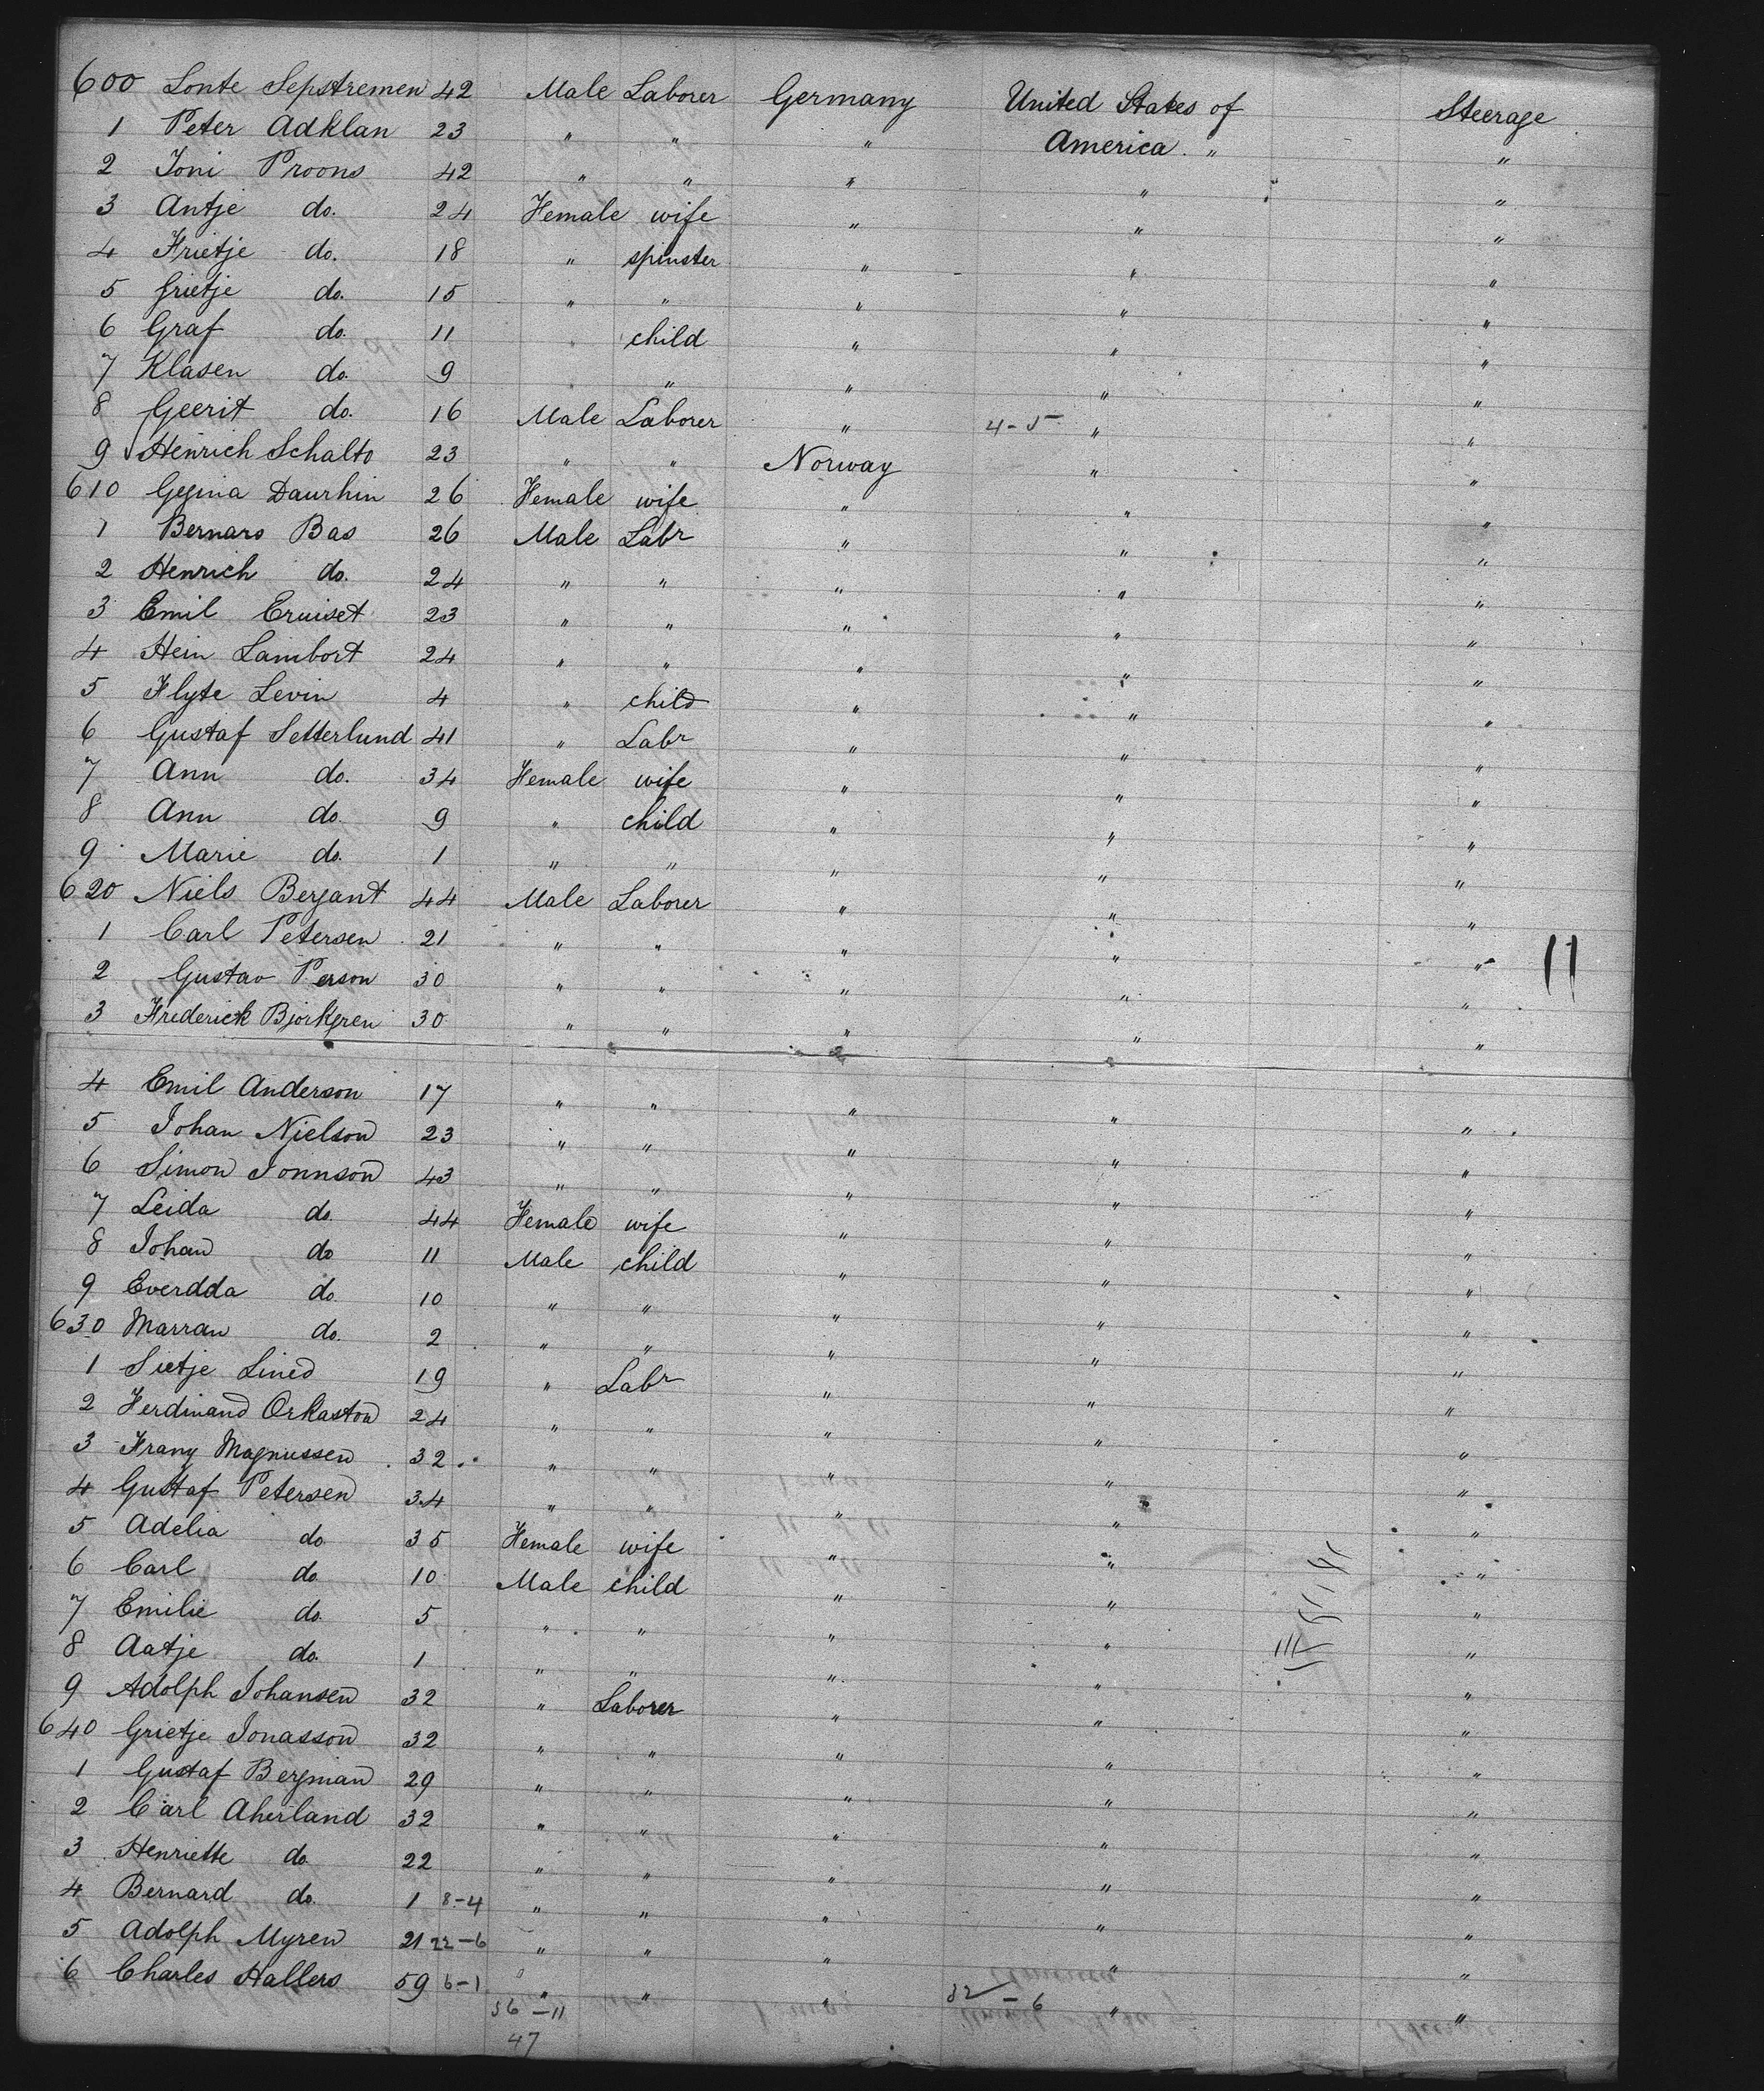 600 Lonte Sepstremen 42 Male Laborer Germany United States of Steerage
1 Peter Adklan 23 " " " America. " "
2 Joni Proons 42 " " " " "
3 Antje do. 24 Female wife " " "
4 Frietje do. 18 " spinster " " "
5 Grietje do. 15 " " " " "
6 Graf do. 11 " child " " "
7 Klasen do. 9 " " " " "
8 Geerit do. 16 Male Laborer " 4-5 " "
9 Henrich Schalto 23 " " Norway " "
610 Gegina Daurhin 26 Female wife " " "
1 Bernaro Bas 26 Male Labr " " "
2 Henrich do. 24 " " " " "
3 Emil Eruiset 23 " " " " "
4 Hein Lambort 24 " " " " "
5 Flyte Levin 4 " child " " "
6 Gustaf Setterlund 41 " Labr " " "
7 Ann do. 34 Female wife " " "
8 Ann do. 9 " child " " "
9 Marie do. 1 " " " " "
620 Niels Bergant 44 Male Laborer " " "
1 Carl Petersen 21 " " " " " 11
2 Gustav Person 30 " " " " "
3 Frederick Bjorkgren 30 " " " " "
4 Emil Anderson 17 " " " " "
5 Johan Njelson 23 " " " " "
6 Simon Jonnson 43 " " " " "
7 Leida do. 44 Female wife " " "
8 Johan do 11 Male child " " "
9 Everdda do. 10 " " " " "
630 Marran do. 2 " " " " "
1 Sietje Lined 19 " Labr " " "
2 Ferdinand Orkaston 24 " " " " "
3 Frany Magnussen 32 " " " " "
4 Gustaf Petersen 34 " " " " "
5 Adelia do. 35 Female wife " " "
6 Carl do. 10 Male child " " "
7 Emilie do. 5 " " " " "
8 Aatje do. 1 " " " " "
9 Adolph Johansen 32 " Laborer " " "
640 Grietje Jonasson 32 " " " " "
1 Gustaf Bergman 29 " " " " "
2 Carl Aherland 32 " " " " "
3 Henriette do. 22 " " " " "
4 Bernard do. 1 8-4 " " " " "
5 Adolph Myren 21 22-6 " " " " "
6 Charles Hallers 59 6-1 " " " " "
36-11 82-6
47